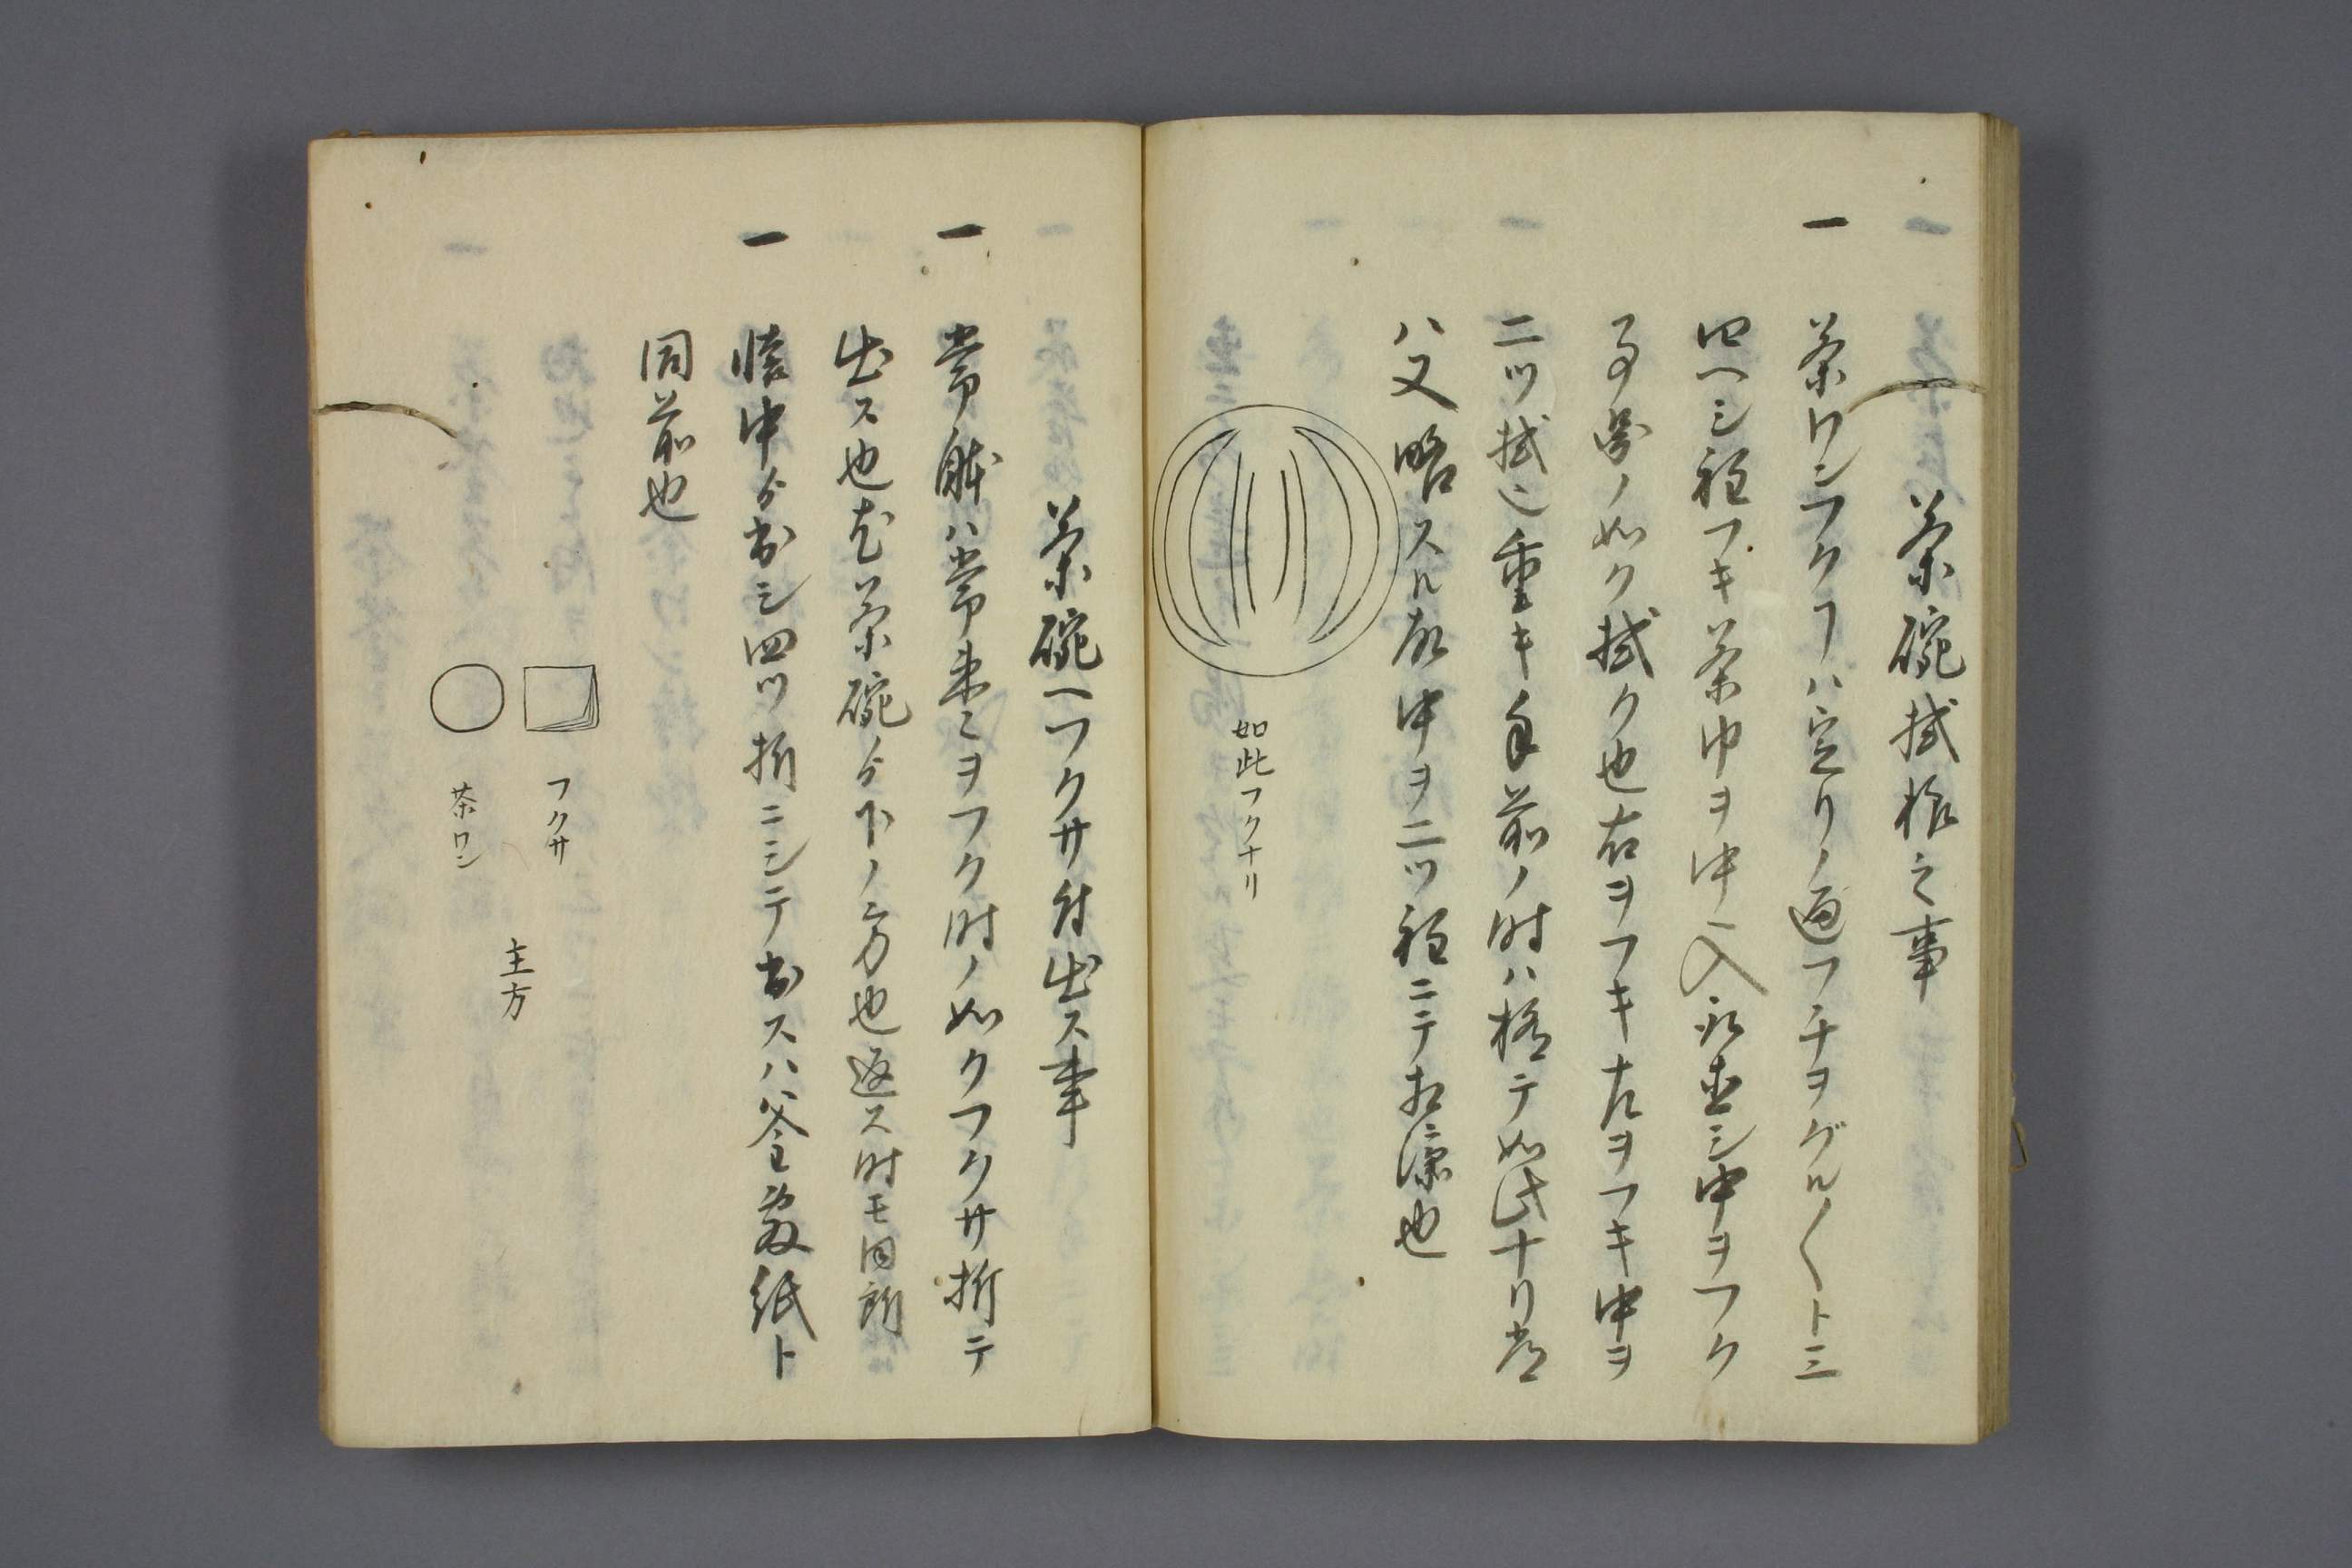 茶碗拭様之事
一 茶ワンフクヿハ定リノ通フチヲグル〱ト三
四ヘシ程フキ茶巾ヲ中入 シ中ヲフク
ノ如ク拭ク也右ヲフキ左ヲフキ中ヲ
二ツ拭 重キ手前ノ時ハ極テ如此ナリ常
ハ又略スル故中ヲ二ツ程ニテ相済也
如此フクナリ
茶碗ヘフクサ付出ス事
一 常躰ハ常 ヲフク時ノ如クフクサ折テ
出ス也尤茶碗ゟ下ノ方也返ス時モ同断
一 懐中ゟ出シ四ツ折ニシテ出スハ釜敷紙ト
同前也
フクサ
茶ワン
主方